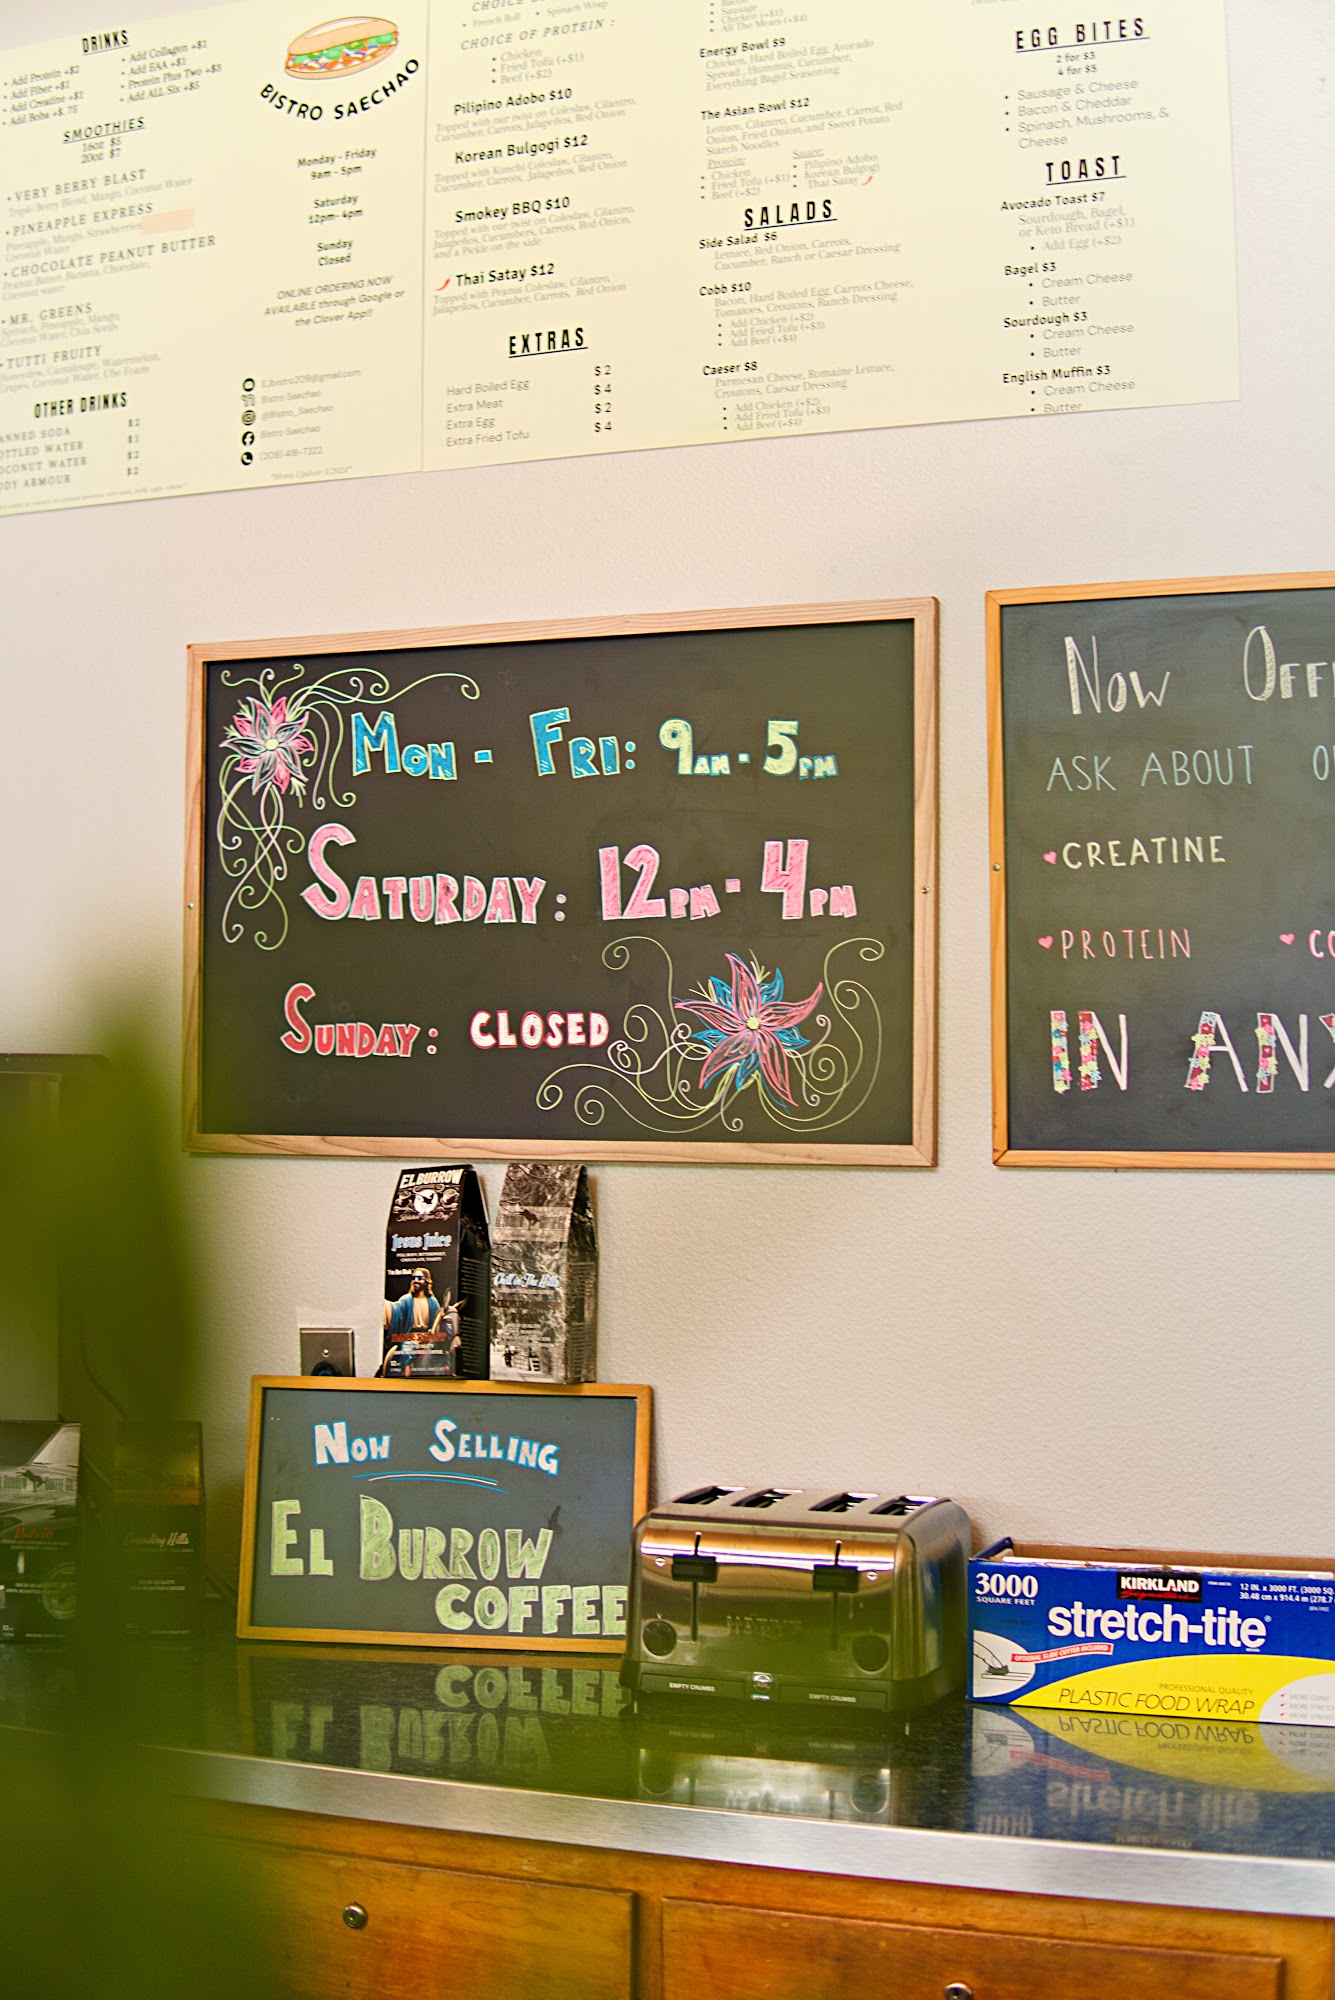 DRINKS
• Add Protein +$2
• Add Fiber +$1
• Add Creatine +$1
• Add Boba +$.75
• Add Collagen +$1
• Add EAA +$1
• Protein Plus Two +$3
• Add ALL Six +$5
SMOOTHIES
16oz $5
20oz $7
• VERY BERRY BLAST
Triple Berry Blend, Mango, Coconut Water
• PINEAPPLE EXPRESS
Pineapple, Mango, Strawberries
Coconut Water
• CHOCOLATE PEANUT BUTTER
Peanut Butter, Banana, Chocolate,
Coconut water
• MR. GREENS
Spinach, Pineapple, Mango,
Coconut Water, Chia Seeds
• TUTTI FRUITY
Honeydew, Cantaloupe, Watermelon,
Grapes, Coconut Water, Ube Foam
OTHER DRINKS
ANNED SODA $2
OTTLED WATER $1
OCONUT WATER $2
ODY ARMOUR $2
BISTRO SAECHAO
Monday - Friday
9am - 5pm
Saturday
12pm- 4pm
Sunday
Closed
ONLINE ORDERING NOW
AVAILABLE through Google or
the Clover App!!
EJbistro209@gmail.com
Bistro Saechao
@Bistro_Saechao
Bistro Saechao
(209) 416-7322
"Menu Update 5/2024"
CHOICE
• French Roll • Spinach Wrap
CHOICE OF PROTEIN :
• Chicken
• Fried Tofu (+$1)
• Beef (+$2)
Pilipino Adobo $10
Topped with our twist on Coleslaw, Cilantro,
Cucumber, Carrots, Jalapeños, Red Onion
Korean Bulgogi $12
Topped with Kimchi Coleslaw, Cilantro,
Cucumber, Carrots, Jalapeños, Red Onion
Smokey BBQ $10
Topped with our twist on Coleslaw, Cilantro,
Jalapeños, Cucumbers, Carrots, Red Onion,
and a Pickle on the side
Thai Satay $12
Topped with Peanut Coleslaw, Cilantro,
Jalapeños, Cucumber, Carrots, Red Onion
EXTRAS
Hard Boiled Egg $2
Extra Meat $4
Extra Egg $2
Extra Fried Tofu $4
• Bacon
• Sausage
• Chicken (+$1)
• All The Meats (+$4)
Energy Bowl $9
Chicken, Hard Boiled Egg, Avocado
Spread , Hummus, Cucumber,
Everything Bagel Seasoning
The Asian Bowl $12
Lettuce, Cilantro, Cucumber, Carrot, Red
Onion, Fried Onion, and Sweet Potato
Starch Noodles
Protein:
• Chicken
• Fried Tofu (+$1)
• Beef (+$2)
Sauce:
• Pilipino Adobo
• Korean Bulgogi
• Thai Satay
SALADS
Side Salad $6
Lettuce, Red Onion, Carrots,
Cucumber, Ranch or Caesar Dressing
Cobb $10
Bacon, Hard Boiled Egg, Carrots Cheese,
Tomatoes, Croutons, Ranch Dressing
• Add Chicken (+$2)
• Add Fried Tofu (+$3)
• Add Beef (+$4)
Caeser $8
Parmesan Cheese, Romaine Lettuce,
Croutons, Caesar Dressing
• Add Chicken (+$2)
• Add Fried Tofu (+$3)
• Add Beef (+$4)
EGG BITES
2 for $3
4 for $5
• Sausage & Cheese
• Bacon & Cheddar
• Spinach, Mushrooms, &
Cheese
TOAST
Avocado Toast $7
Sourdough, Bagel,
or Keto Bread (+$1)
• Add Egg (+$2)
Bagel $3
• Cream Cheese
• Butter
Sourdough $3
• Cream Cheese
• Butter
English Muffin $3
• Cream Cheese
• Butter
MON - FRI: 9AM - 5PM
SATURDAY: 12PM - 4PM
SUNDAY: CLOSED
NOW OFF
ASK ABOUT O
CREATINE
PROTEIN
CO
IN AN
EL BURROW
Jesus Juice
Chill in The Hills
Cascading Hills
NOW SELLING
EL BURROW
COFFEE
EMPTY CRUMBS
EMPTY CRUMBS
3000
SQUARE FEET
KIRKLAND
Signature
12 IN. x 3000 FT. (3000 SQ.
30.48 cm x 914.4 m (278.7
stretch-tite®
OPTIONAL SLIDE CUTTER INCLUDED
PROFESSIONAL QUALITY
PLASTIC FOOD WRAP
MORE CLING